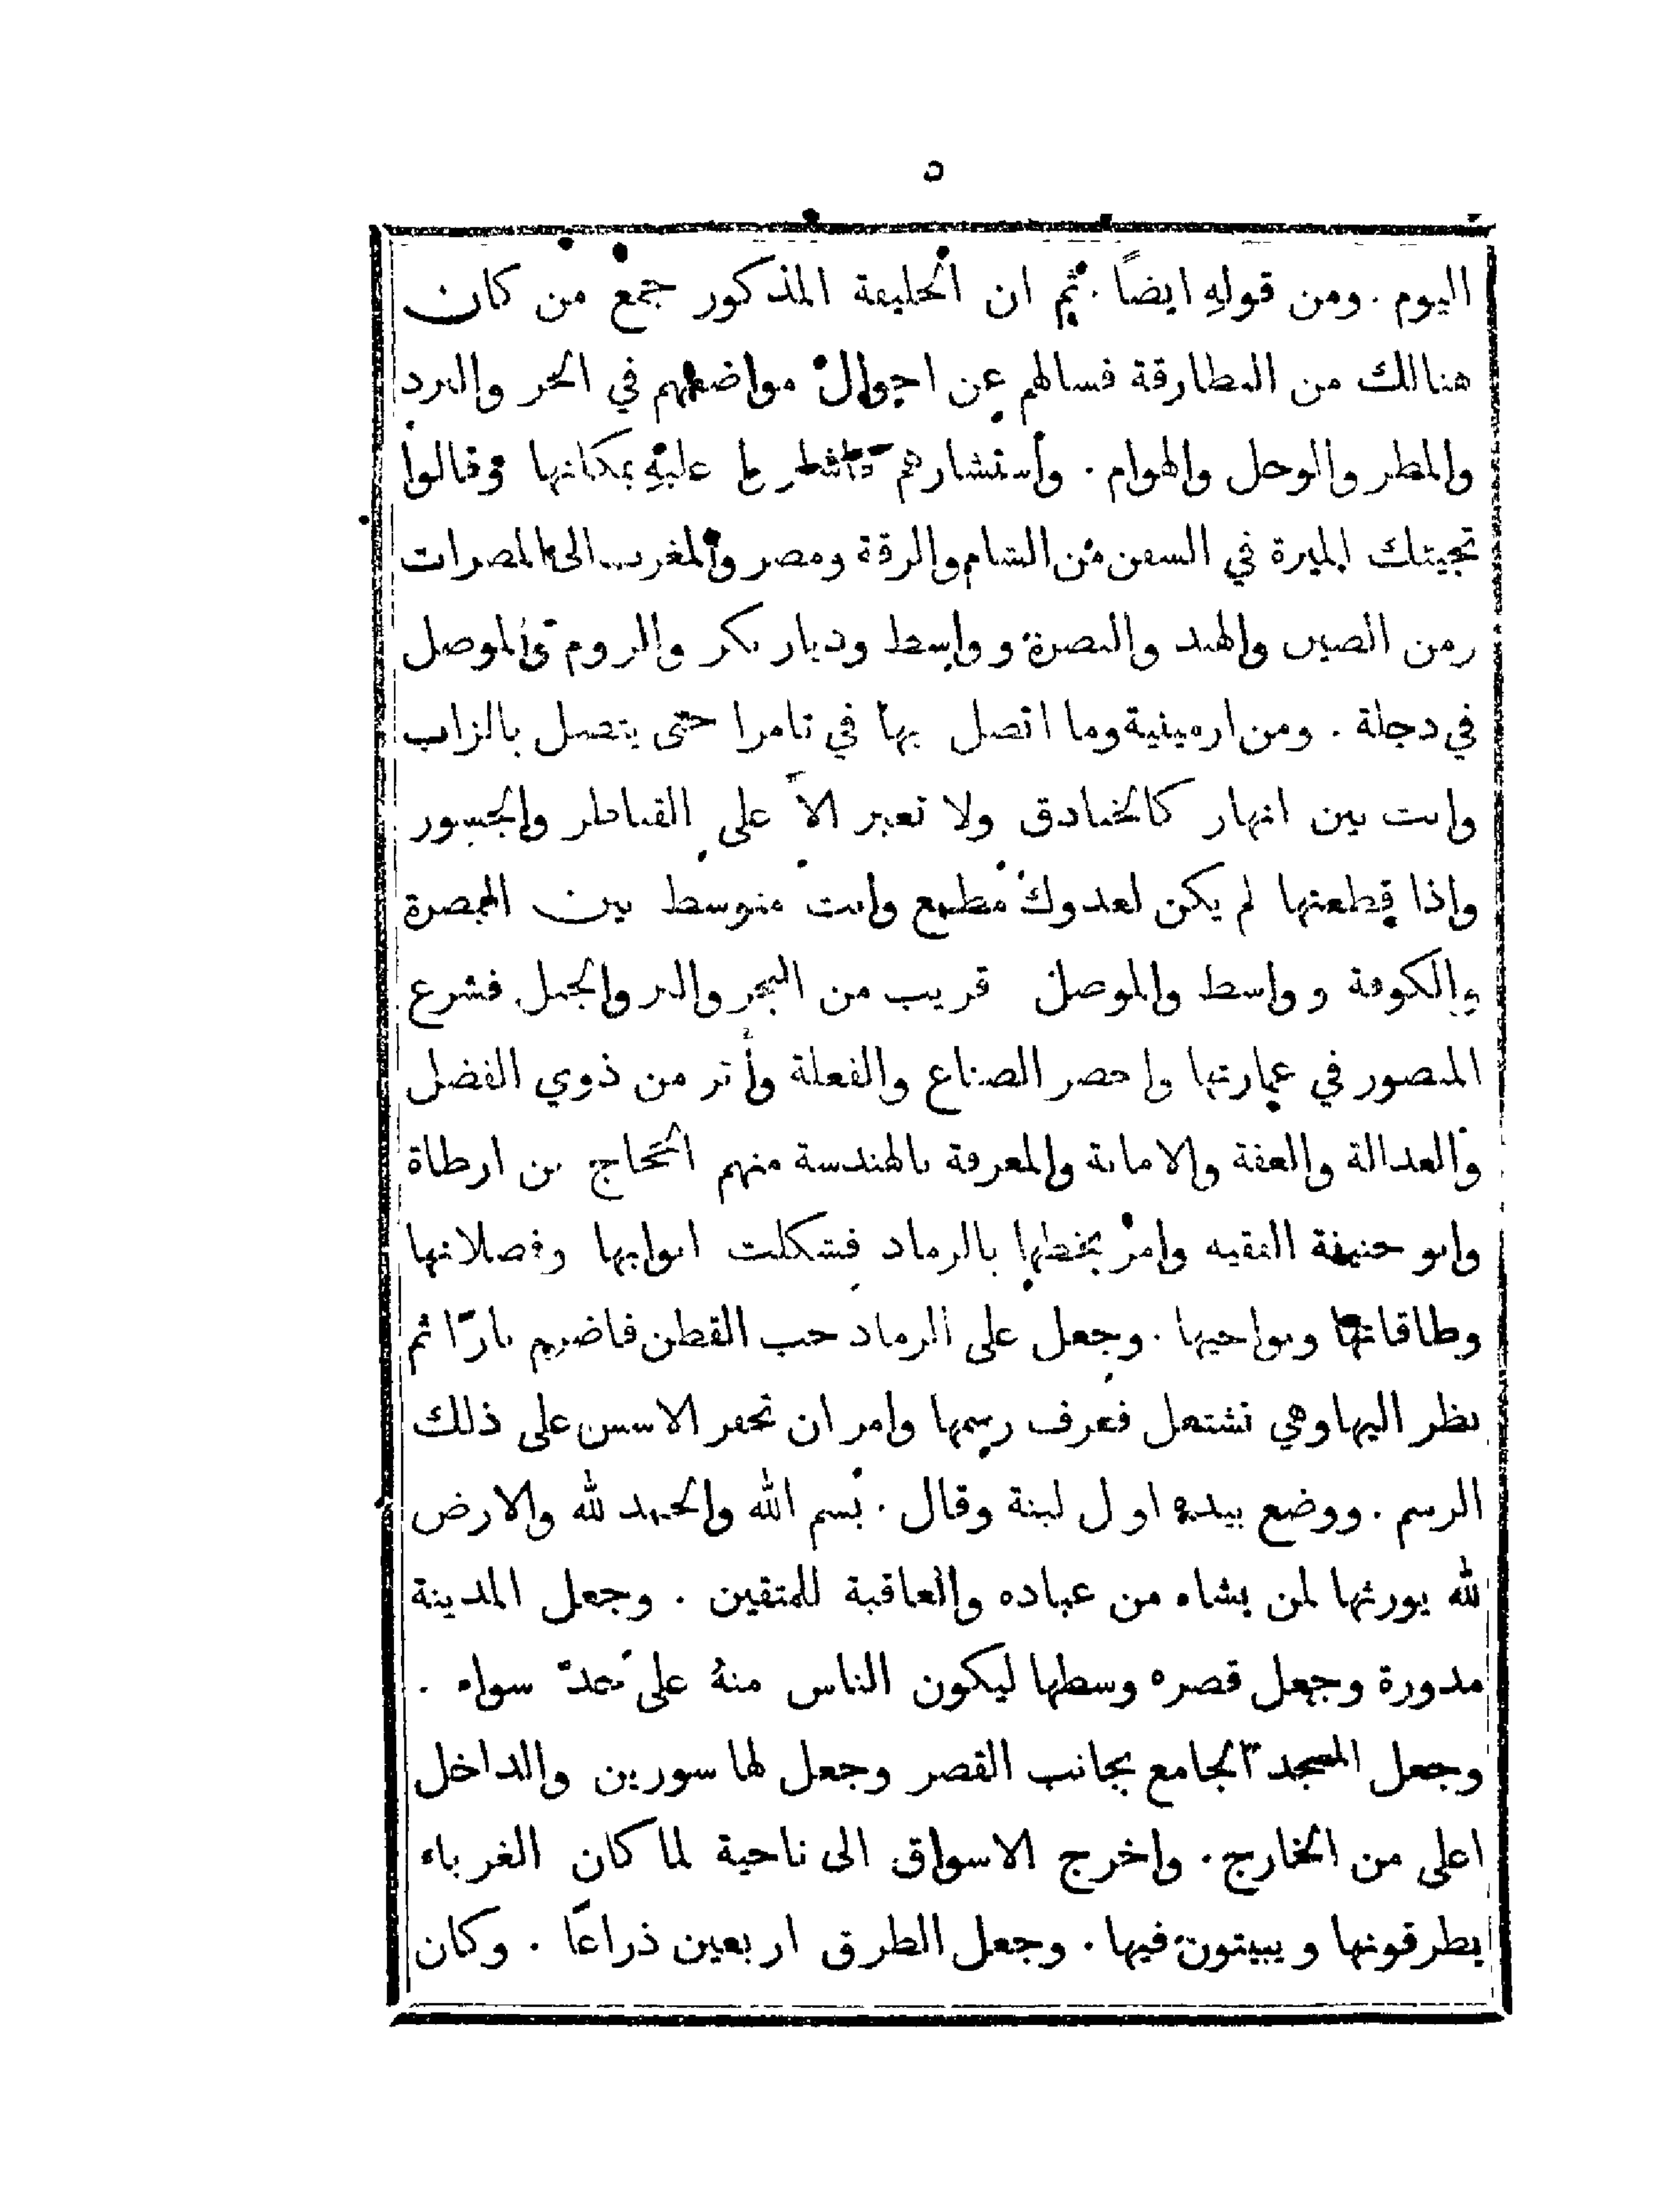 ٥
اليوم . ومن قولهِ ايضاً . ثم ان الخليفة المذكور جمع من كان
هنالك من البطارقة فسالهم عن احوال مواضعهم في الحر والبرد
والمطر والوحل والهوام . واستشارهم عليهِ بمكانها وقالوا
تجيئك الميرة في السفن من الشام والرقة ومصر والمغرب الى المصرات
ومن الصين والهند والبصرة وواسط وديار بكر والروم والموصل
في دجلة . ومن ارمينية وما اتصل بها في تامرا حتى يتصل بالزاب
وانت بين انهار كالخنادق ولا تعبر الاّ على القناطر والجسور
واذا قطعتها لم يكن لعدوك مطمع وانت متوسط بين البصرة
والكوفة وواسط والموصل قريب من البحر والبر والجبل فشرع
المنصور في عمارتها واحضر الصناع والفعلة وأتر من ذوي الفضل
والعدالة والعفة والامانة والمعرفة بالهندسة منهم الحجاج بن ارطاة
وابو حنيفة الفقيه وامر بخطها بالرماد فشكلت ابوابها وفصلانها
وطاقاتها ونواحيها . وجعل على الرماد حب القطن فاضرم نارًا ثم
نظر اليها وهي تشتعل فعرف رسمها وامر ان تحفر الاسس على ذلك
الرسم . ووضع بيده اول لبنة وقال . بسم الله والحمد لله والارض
لله يورثها لمن يشاء من عباده والعاقبة للمتقين . وجعل المدينة
مدورة وجعل قصره وسطها ليكون الناس منهُ على حدّ سواء .
وجعل المسجد الجامع بجانب القصر وجعل لها سورين والداخل
اعلى من الخارج . واخرج الاسواق الى ناحية لما كان الغرباء
يطرقونها ويبيتون فيها . وجعل الطرق اربعين ذراعًا . وكان